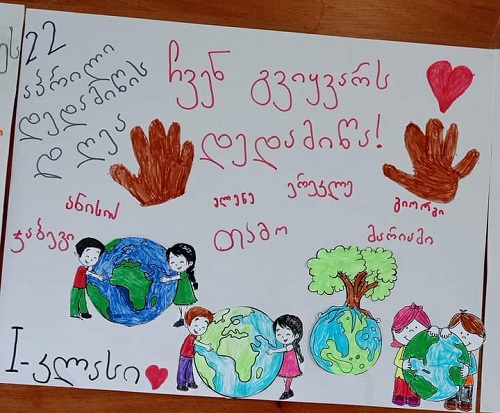 22
აპრილი
დედამიწის
დღეა
ჩვენ გვიყვარს
დედამიწა!
ანისია
ელენე
ერეკლე
გიორგი
ჯაბეგი
თამო
მარიამი
I-კლასი